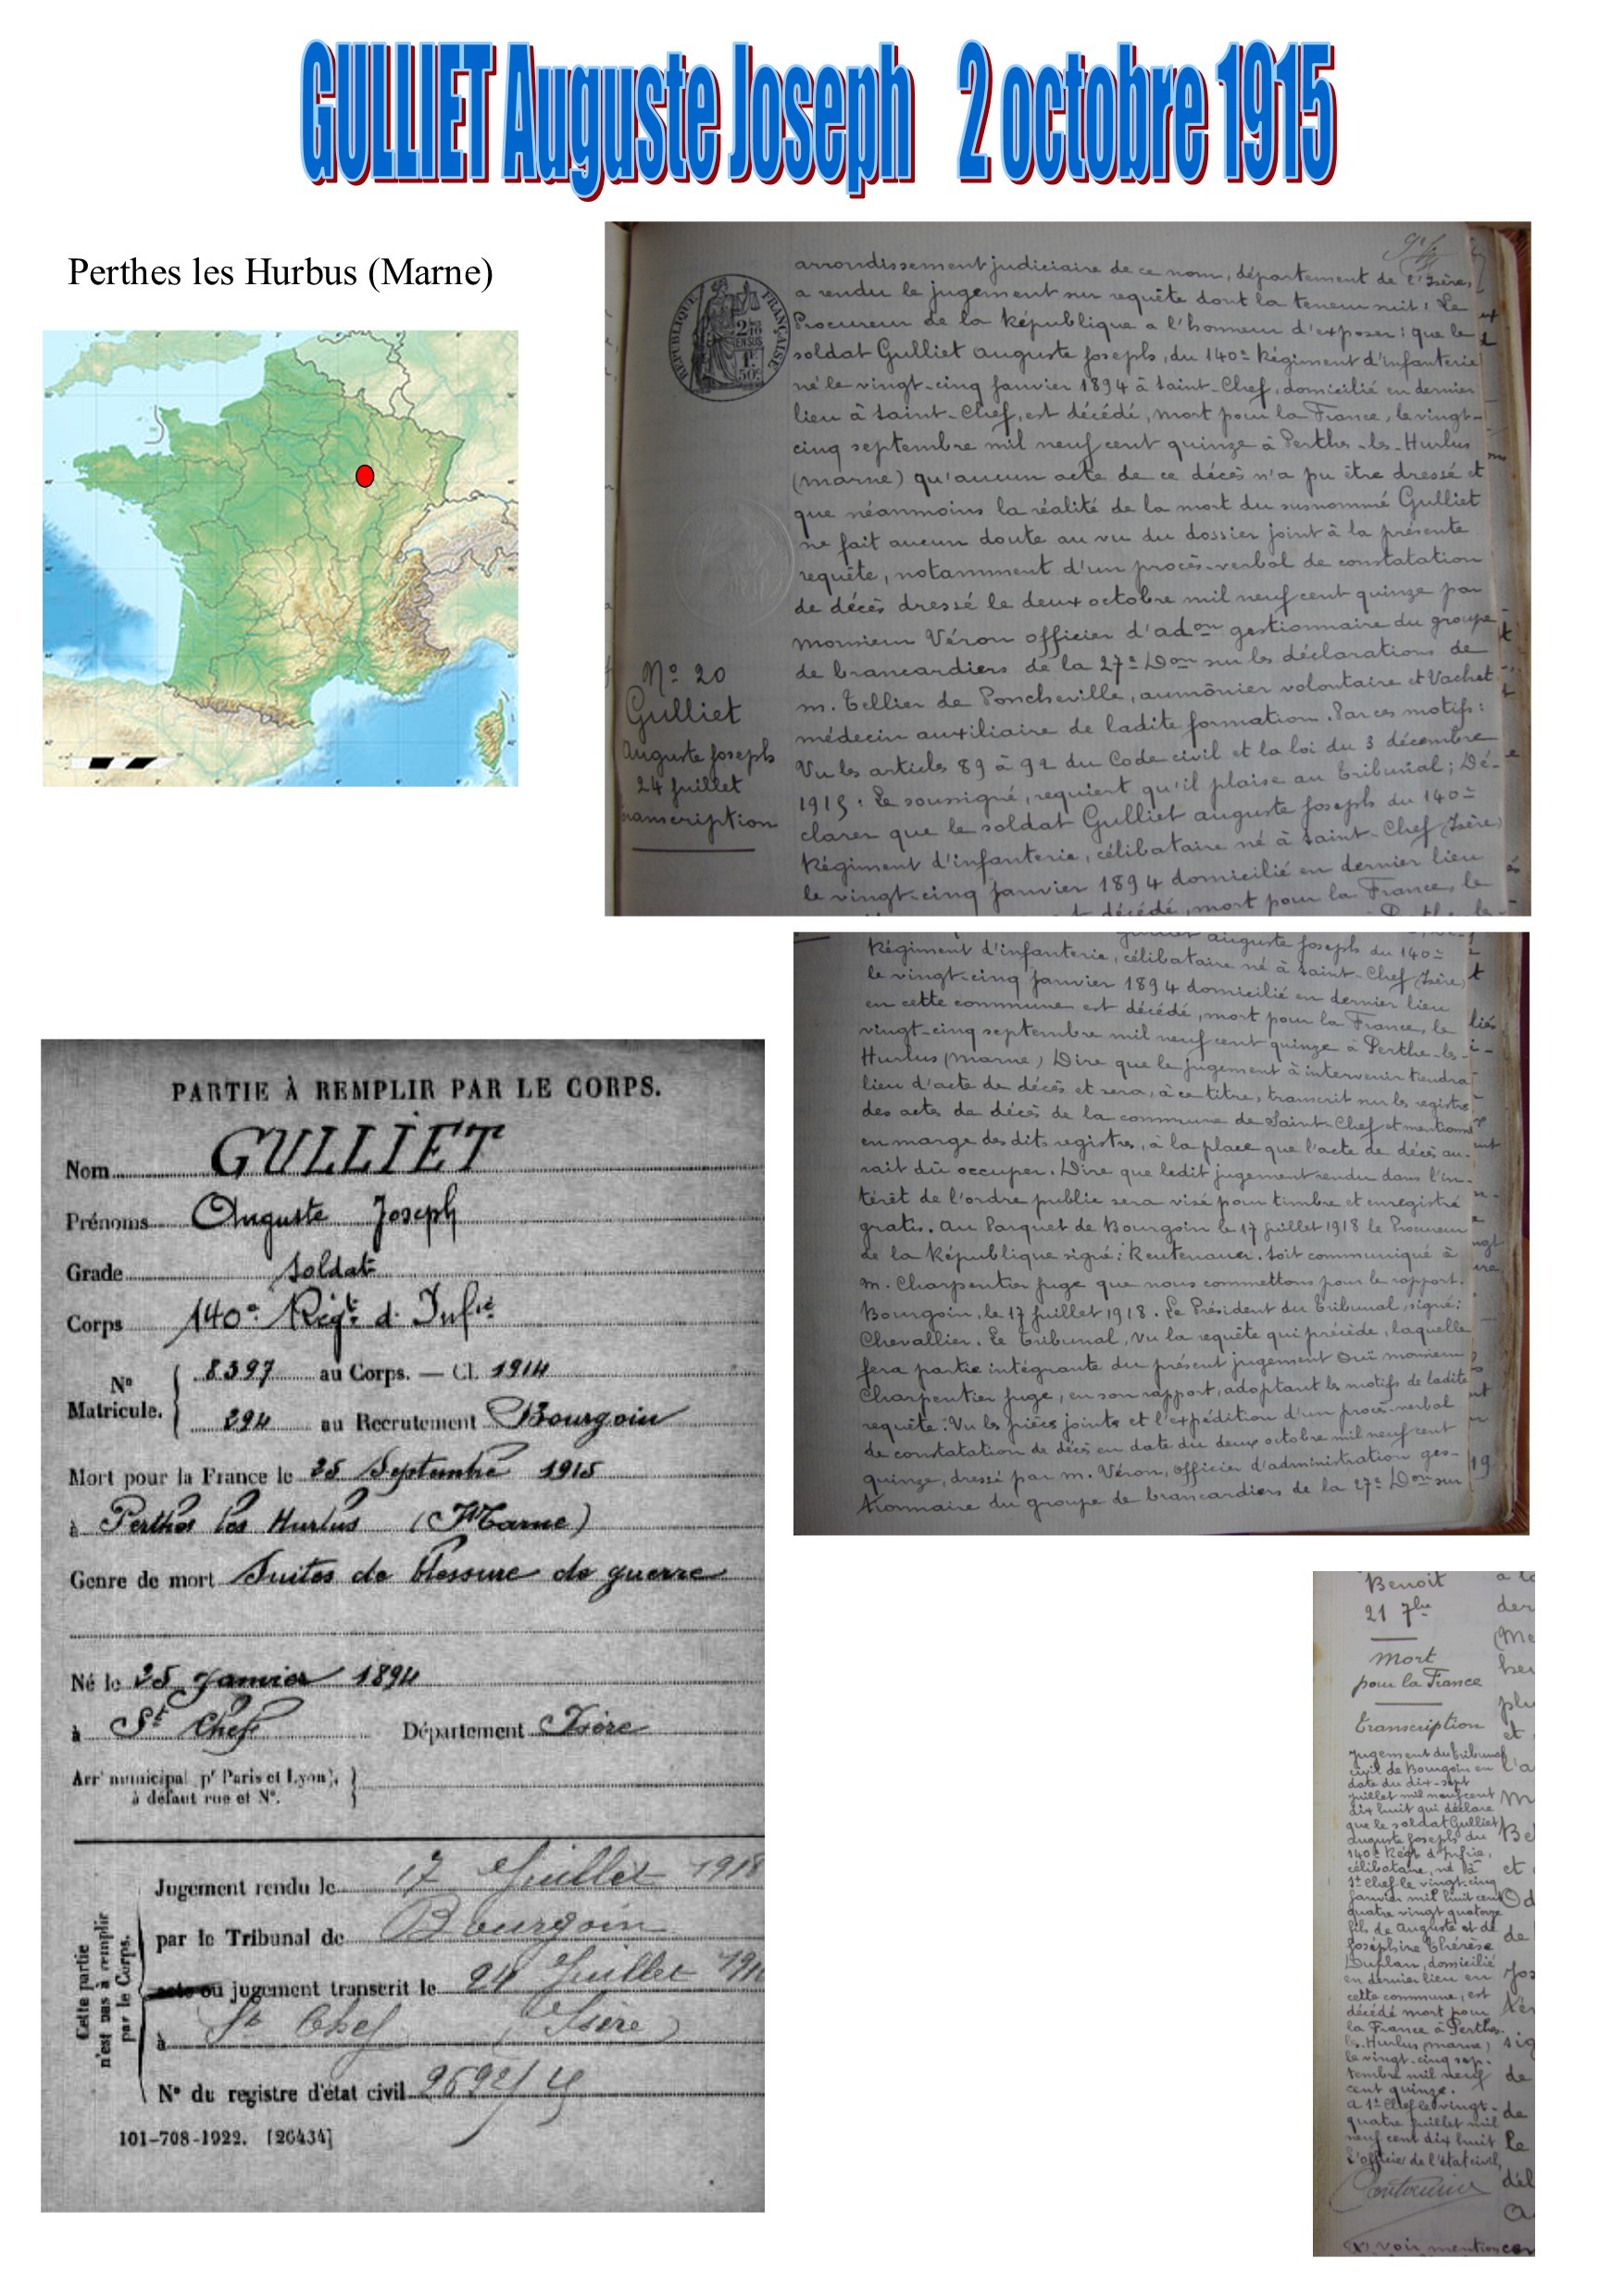 GULLIET Auguste Joseph 2 octobre 1915
Perthes les Hurbus (Marne)
arrondissement judiciaire de ce nom, département de l'Isère,
a rendu le jugement sur requête dont la teneur suit : Le
Procureur de la République a l'honneur d'exposer : que le
soldat Gulliet Auguste Joseph, du 140e Régiment d'infanterie
né le vingt-cinq Janvier 1894 à Saint-Chef, domicilié en dernier
lieu à Saint-Chef, est décédé, mort pour la France, le vingt-
cinq septembre mil neuf cent quinze à Perthes-les-Hurlus
(Marne) qu'aucun acte de ce décès n'a pu être dressé et
que néanmoins la réalité de la mort du susnommé Gulliet
ne fait aucun doute au vu du dossier joint à la présente
requête, notamment d'un procès-verbal de constatation
de décès dressé le deux octobre mil neuf cent quinze par
Monsieur Véron officier d'adon gestionnaire du groupe
de brancardiers de la 27e Don sur les déclarations de
M. Tellier de Poncheville, aumônier volontaire et Vachet
médecin auxiliaire de ladite formation. Par ces motifs :
Vu les articles 89 à 92 du Code civil et la loi du 3 décembre
1915 : Le soussigné, requiert qu'il plaise au Tribunal ; Dé-
clarer que le soldat Gulliet Auguste Joseph du 140e
Régiment d'infanterie, célibataire né à Saint-Chef (Isère)
le vingt-cinq Janvier 1894 domicilié en dernier lieu
décédé, mort pour la France, le
RÉPUBLIQUE FRANÇAISE
No 20
Gulliet
Auguste Joseph
24 Juillet
transcription
Auguste Joseph du 140e
Régiment d'infanterie, célibataire né à Saint-Chef (Isère)
le vingt-cinq Janvier 1894 domicilié en dernier lieu
en cette commune est décédé, mort pour la France, le
vingt-cinq septembre mil neuf cent quinze à Perthe-les-
Hurlus (Marne) Dire que le jugement à intervenir tiendra
lieu d'acte de décès et sera, à ce titre, transcrit sur les registres
des actes de décès de la commune de Saint-Chef et mentionné
en marge des dits registres, à la place que l'acte de décès au-
rait dû occuper. Dire que ledit jugement rendu dans l'in-
térêt de l'ordre public sera visé pour timbre et enregistré
gratis. Au Parquet de Bourgoin le 17 Juillet 1918 le Procureur
de la République signé : . Soit communiqué à
M. Charpentier Juge que nous commettons pour le rapport.
Bourgoin, le 17 Juillet 1918. Le Président du Tribunal, signé :
Chevallier. Le Tribunal, Vu la requête qui précède, laquelle
fera partie intégrante du présent jugement Ouï monsieur
Charpentier Juge, en son rapport, adoptant les motifs de ladite
requête : Vu les pièces jointes et l'expédition d'un procès-verbal
de constatation de décès en date du deux octobre mil neuf cent
quinze, dressé par M. Véron, Officier d'administration ges-
tionnaire du groupe de brancardiers de la 27e Don sur
PARTIE À REMPLIR PAR LE CORPS.
Nom GULLIET
Prénoms Auguste Joseph
Grade Soldat
Corps 140e Régt d'Infie
No Matricule. 8397 au Corps. — Cl. 1914
294 au Recrutement Bourgoin
Mort pour la France le 25 Septembre 1915
à Perthes les Hurlus (Marne)
Genre de mort Suites de blessure de guerre
Né le 25 Janvier 1894
à St Chef Département Isère
Arrt municipal pr Paris et Lyon),
à défaut rue et No.
Cette partie
n'est pas à remplir
par le Corps.
Jugement rendu le 17 Juillet 1918
par le Tribunal de Bourgoin
acte ou jugement transcrit le 24 Juillet
à St Chef (Isère)
No du registre d'état civil
101-708-1922. [26434]
Benoit
21 7bre
Mort
pour la France
Transcription
Jugement du Tribunal
civil de Bourgoin en
date du dix-sept
juillet mil neuf cent
dix huit qui déclare
que le soldat Gulliet
Auguste Joseph du
140e Régt d'Infie,
célibataire, né à
St Chef le vingt-cinq
Janvier mil huit cent
quatre vingt quatorze
fils de Auguste et de
Joséphine Thérèse
Duplan, domicilié
en dernier lieu en
cette commune, est
décédé mort pour
la France à Perthes-
les-Hurlus (Marne)
le vingt-cinq sep-
tembre mil neuf
cent quinze.
A St Chef le vingt-
quatre juillet mil
neuf cent dix huit
L'officier de l'état civil,
voir mention